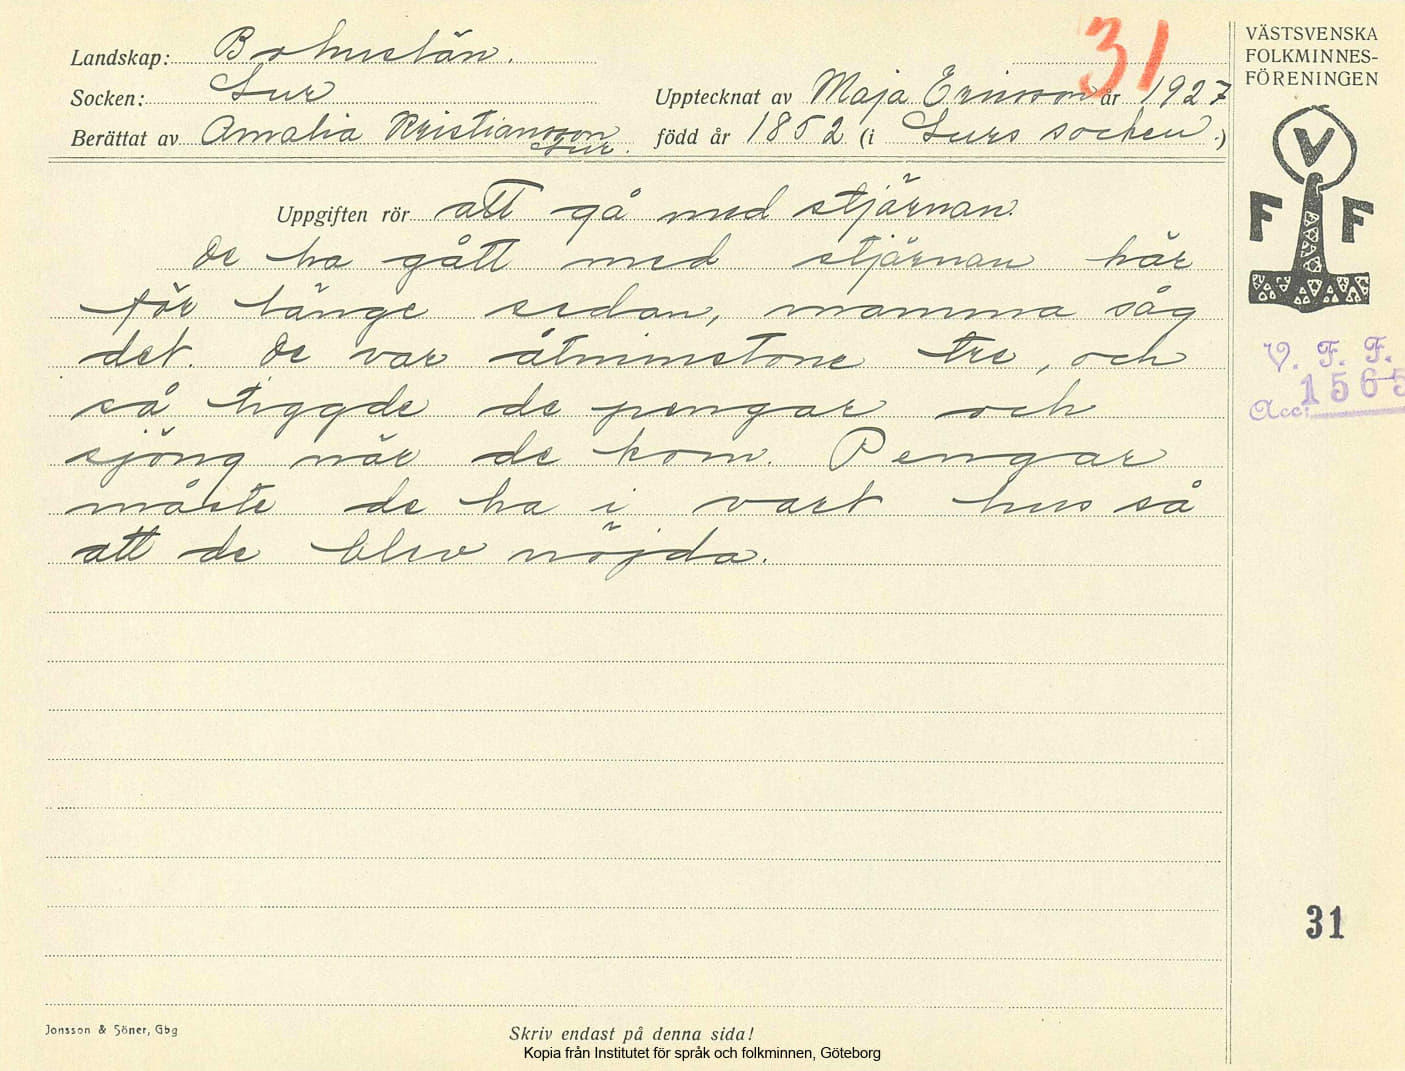 31
VÄSTSVENSKA
FOLKMINNES-
FÖRENINGEN
Landskap: Bohuslän.
Socken: Lur
Upptecknat av Maja Ericsson år 1927
Berättat av Amalia Kristiansson Lur. född år 1852 (i Lurs socken.)
V
F F
Uppgiften rör att gå med stjärnan.
De ha gått med stjärnan här
för länge sedan, mamma såg
det. De var åtminstone tre, och
så tiggde de pengar och
sjöng när de kom. Pengar
måste de ha i vart hus så
att de blev nöjda.
V. F. F.
Acc: 1565
31
Jonsson & Söner, Gbg
Skriv endast på denna sida!
Kopia från Institutet för språk och folkminnen, Göteborg